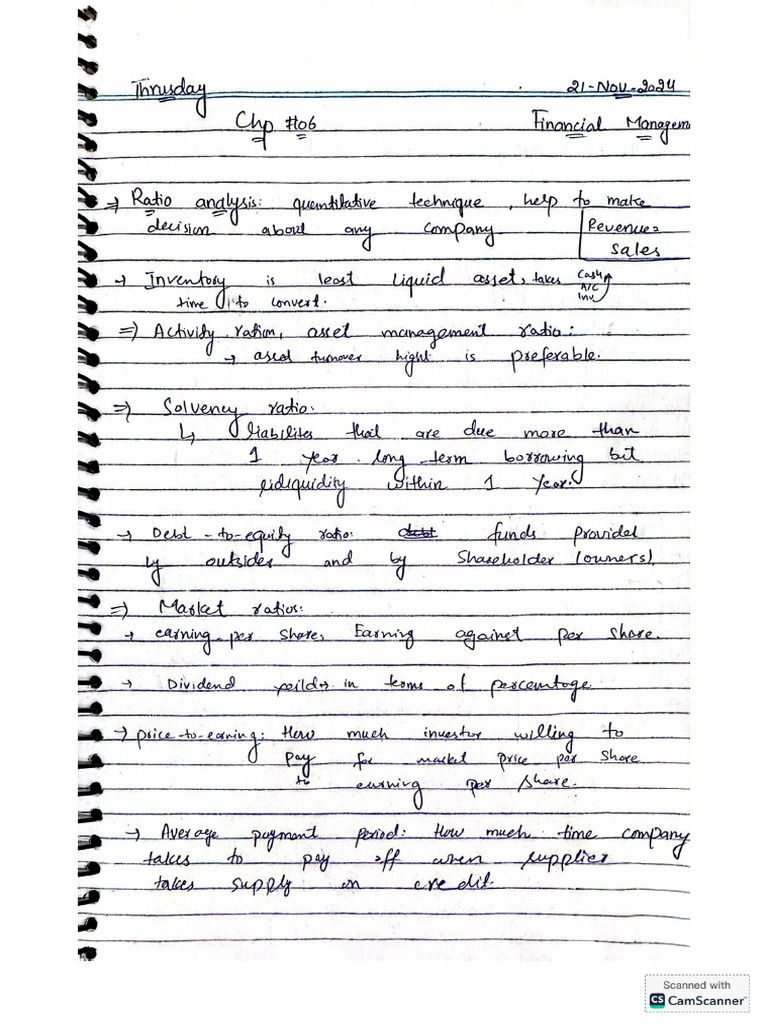 Thrusday 21-Nov-2024
Chp #06 Financial Managem
⇒ Ratio analysis: quantilative technique, help to make
decision about any company
Revenue=
sales
→ Inventory is least liquid asset, takes
time to convert.
Cash
A/C
Inv
⇒) Activity ration, asset management ratio:
→ turnover hight is preferable.
⇒) Solvency ratio:
↳ liabilites that are due more than
1 year. long-term borrowing but
within 1 year.
→ Debt-to-equity ratio: debt funds provided
by outsides and by shareholder (owners).
⇒) Market ratios:
→ earning-per share: Earning against per share.
→ Dividend yeild→ in terms of percentage.
→ price-to-earning: How much investor willing to
pay for market price per share
to earning per share.
→ Average payment period: How much time company
takes to pay off when supplier
takes supply on credit.
Scanned with
CS CamScanner